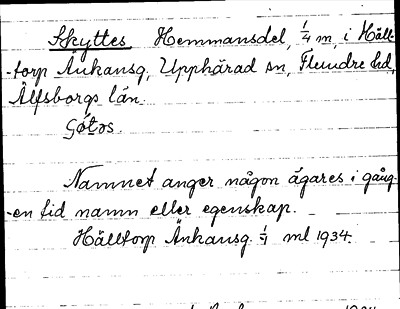 Skyttes Hemmansdel, 1/4 m, i Häll-
-torp Änkansg, Upphärad sn, Flundre hd,
Älfsborgs län.
Götos.
Namnet anger någon ägares i gång-
-en tid namn eller egenskap.
Hälltorp Änkansg. 1/4 ml 1934.